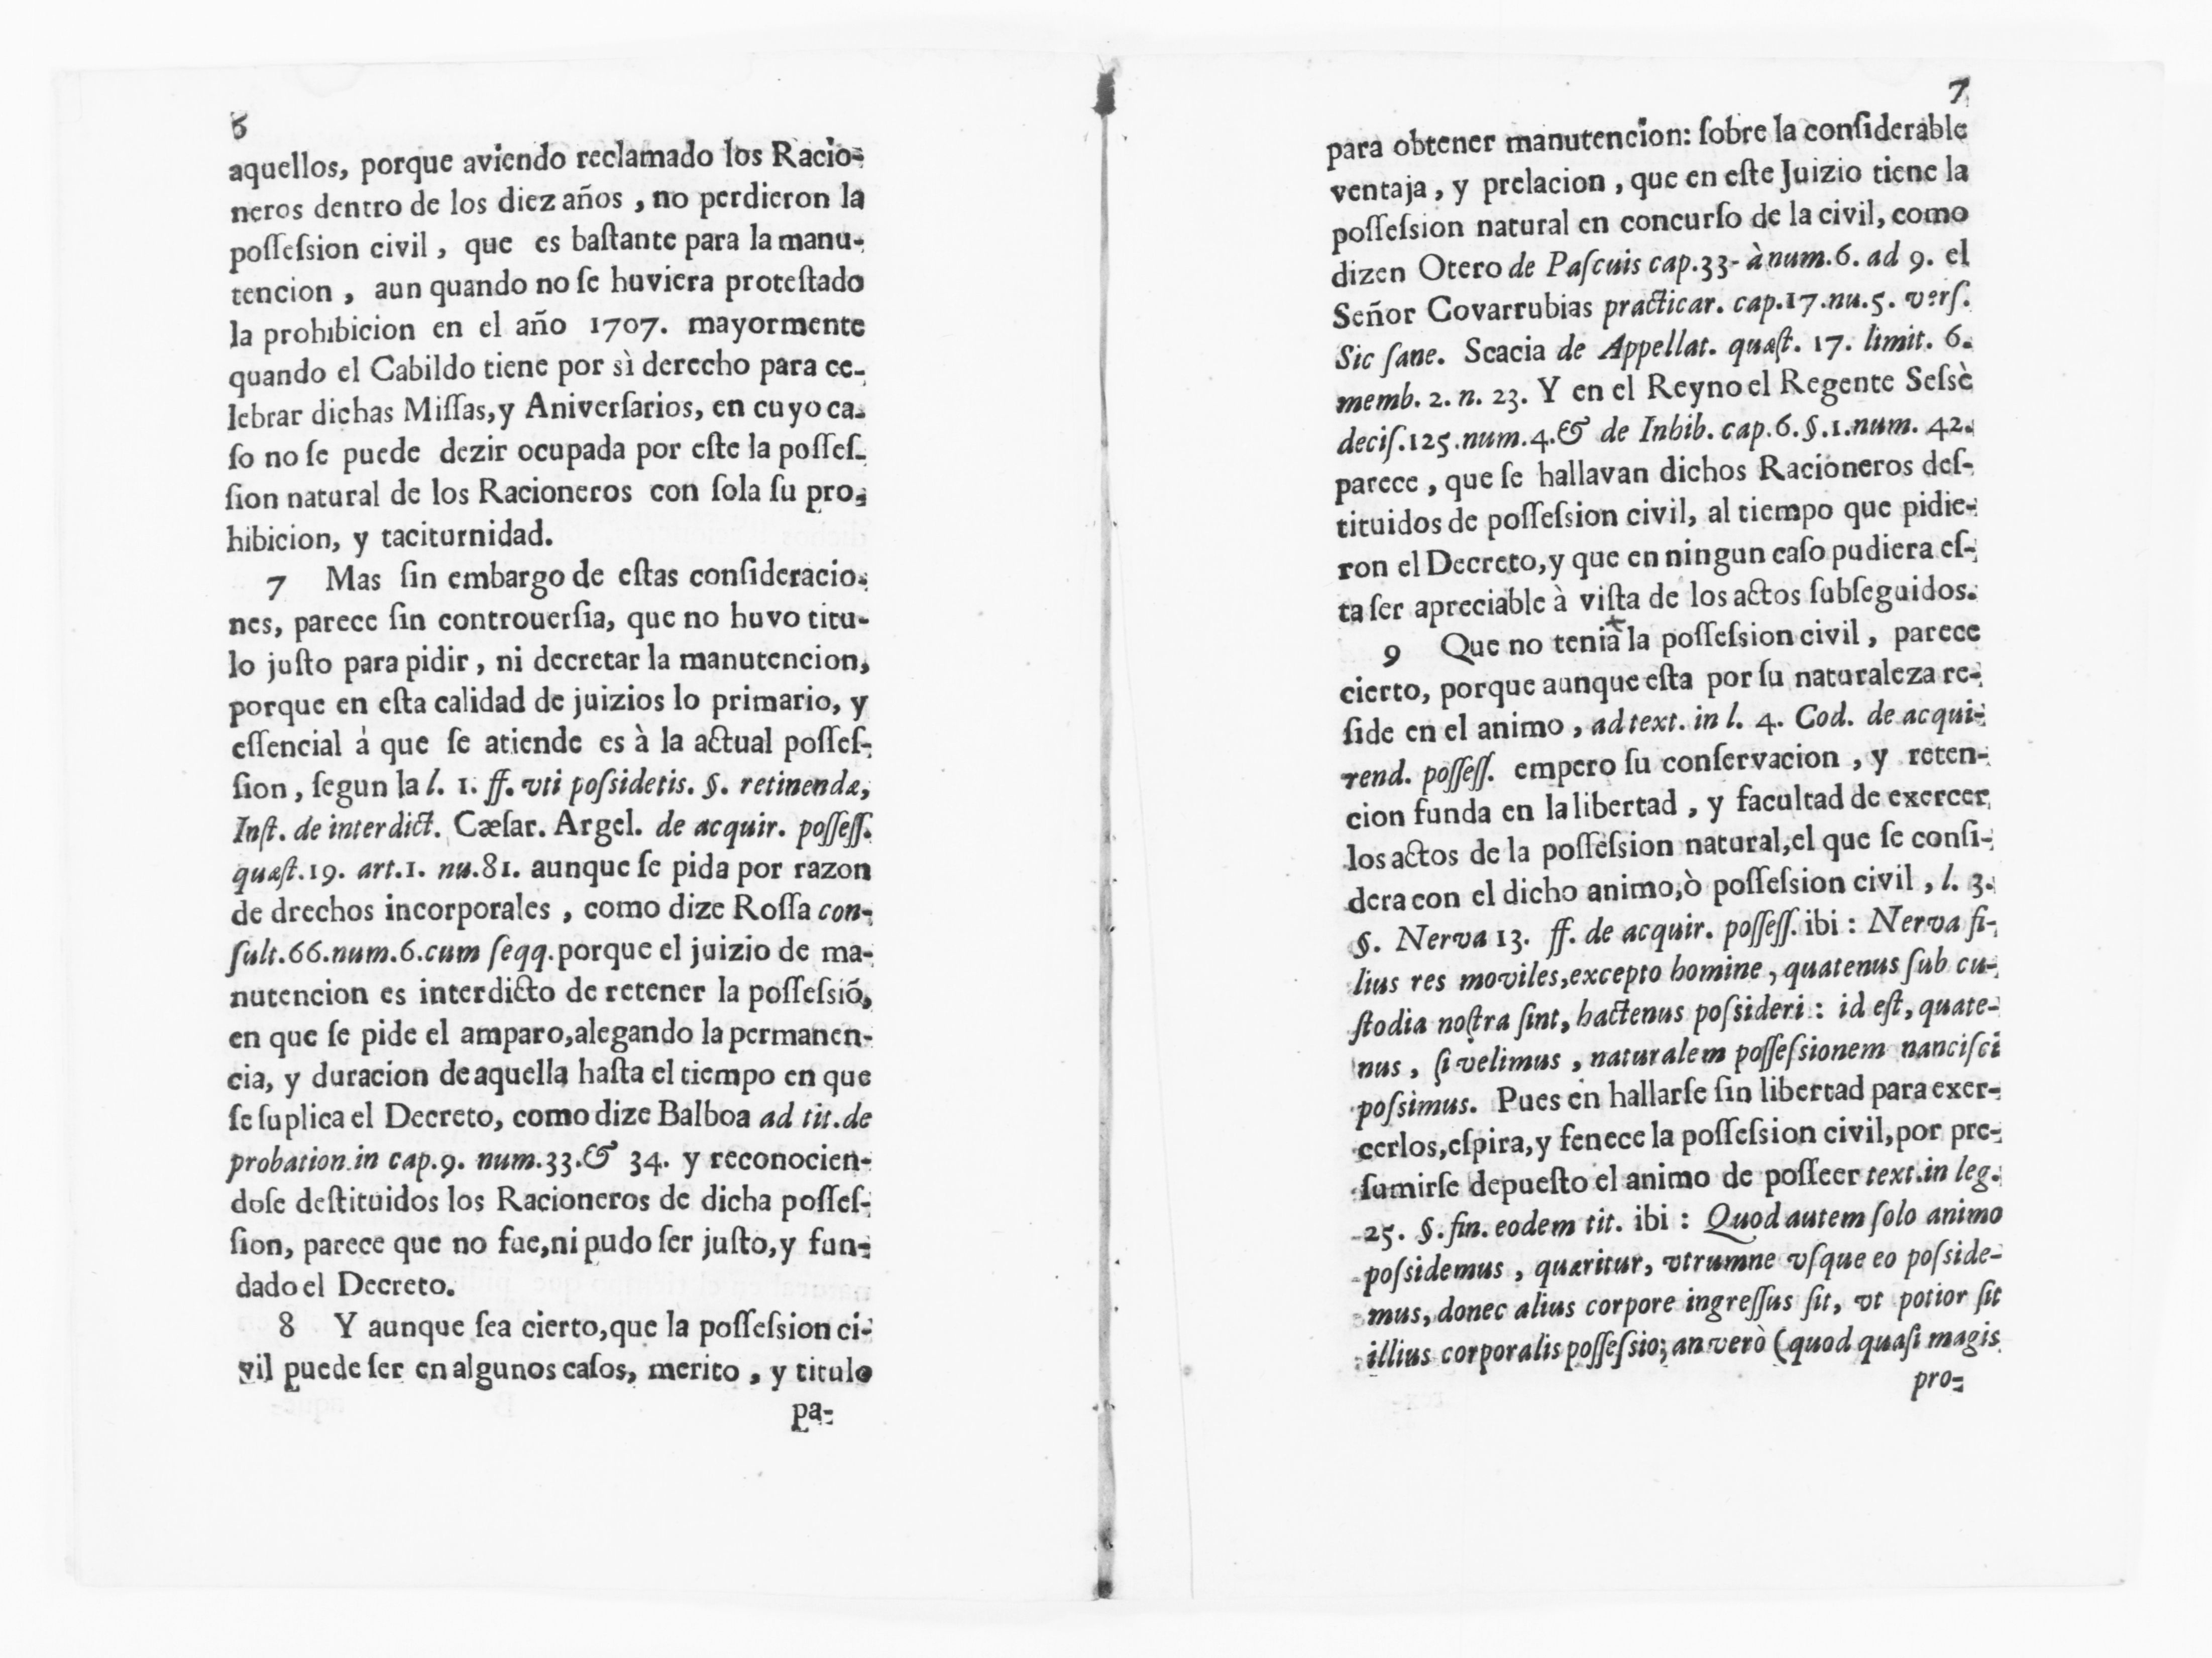 6
aquellos, porque aviendo reclamado los Racio-
neros dentro de los diez años , no perdieron la
posſeſsion civil , que es baſtante para la manu-
tencion , aun quando no ſe huviera proteſtado
la prohibicion en el año 1707. mayormente
quando el Cabildo tiene por sì derecho para ce-
lebrar dichas Miſſas,y Aniverſarios, en cuyo ca-
ſo no ſe puede dezir ocupada por eſte la poſſeſ-
ſion natural de los Racioneros con ſola ſu pro-
hibicion, y taciturnidad.
7 Mas ſin embargo de eſtas conſideracio-
nes, parece ſin controuerſia, que no huvo titu-
lo juſto para pidir , ni decretar la manutencion,
porque en eſta calidad de juizios lo primario, y
eſſencial á que ſe atiende es à la actual poſſeſ-
ſion , ſegun la l. 1. ff. vti poſsidetis. §. retinendæ,
Inſt. de interdict. Cæſar. Argel. de acquir. poſſeſſ.
quæſt.19. art.1. nu.81. aunque ſe pida por razon
de drechos incorporales , como dize Roſſa con-
ſult.66.num.6.cum ſeqq.porque el juizio de ma-
nutencion es interdicto de retener la poſſeſsiõ,
en que ſe pide el amparo,alegando la permanen-
cia, y duracion de aquella haſta el tiempo en que
ſe ſuplica el Decreto, como dize Balboa ad tit.de
probation.in cap.9. num.33.& 34. y reconocien-
doſe deſtituidos los Racioneros de dicha poſſeſ-
ſion, parece que no fue,ni pudo ſer juſto,y fun-
dado el Decreto.
8 Y aunque ſea cierto,que la poſſeſsion ci-
vil puede ſer en algunos caſos, merito , y titulo
pa-
7
para obtener manutencion: ſobre la conſiderable
ventaja , y prelacion , que en eſte Juizio tiene la
poſſeſsion natural en concurſo de la civil, como
dizen Otero de Paſcuis cap.33- à num.6. ad 9. el
Señor Covarrubias practicar. cap.17.nu.5. verſ.
Sic ſane. Scacia de Appellat. quæſt. 17. limit. 6.
memb. 2. n. 23. Y en el Reyno el Regente Seſsè
deciſ.125.num.4.& de Inhib. cap.6.§.1.num. 42.
parece , que ſe hallavan dichos Racioneros deſ-
tituidos de poſſeſsion civil, al tiempo que pidie-
ron el Decreto,y que en ningun caſo pudiera eſ-
ta ſer apreciable à viſta de los actos ſubſeguidos.
9 Que no tenia la poſſeſsion civil , parece
cierto, porque aunque eſta por ſu naturaleza re-
ſide en el animo , ad text. in l. 4. Cod. de acqui-
rend. poſſeſſ. empero ſu conſervacion , y reten-
cion funda en la libertad , y facultad de exercer
los actos de la poſſeſsion natural,el que ſe conſi-
dera con el dicho animo,ò poſſeſsion civil , l. 3.
§. Nerva 13. ff. de acquir. poſſeſſ. ibi : Nerva fi-
lius res moviles,excepto homine , quatenus ſub cu-
ſtodia noſtra ſint, hactenus poſsideri : id eſt, quate-
nus , ſi velimus , naturalem poſſeſsionem nanciſci
poſsimus. Pues en hallarſe ſin libertad para exer-
cerlos,eſpira,y fenece la poſſeſsion civil,por pre-
ſumirſe depueſto el animo de poſſeer text.in leg.
25. §. fin. eodem tit. ibi : Quod autem ſolo animo
poſsidemus , quæritur, vtrumne vſque eo poſside-
mus, donec alius corpore ingreſſus ſit, vt potior ſit
illius corporalis poſſeſsio; an verò (quod quaſi magis
pro-